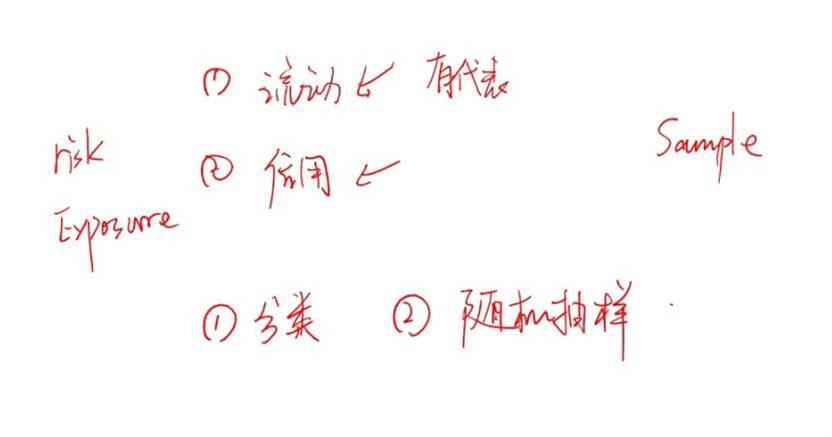 ① 流动 ↙ 有代表
risk
② 信用 ↙
Sample
Exposure
① 分类 ② 随机抽样